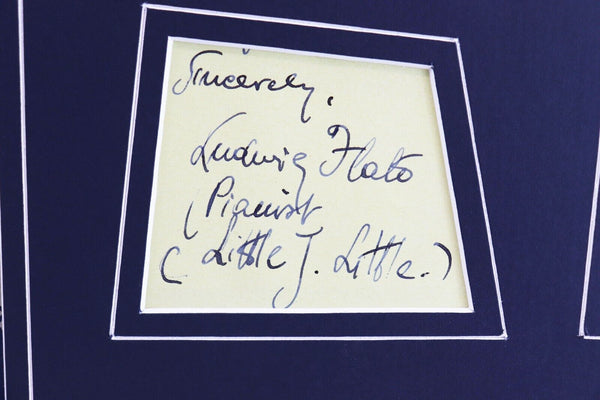 Sincerely,
Ludwig Flato
(Pianist
(Little J. Little.)